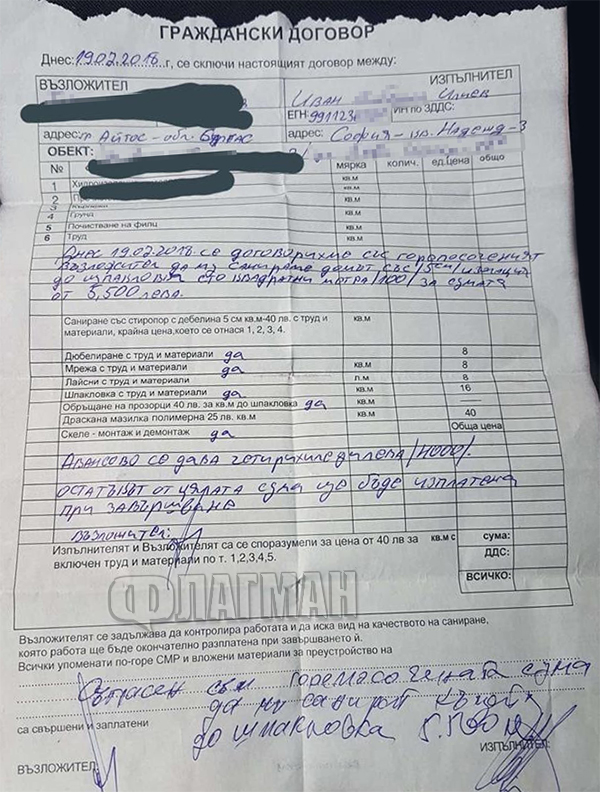 ГРАЖДАНСКИ ДОГОВОР
Днес: 19.02.2018 г, се сключи настоящият договор между:
ВЪЗЛОЖИТЕЛ ИЗПЪЛНИТЕЛ
Иван Илиев
ЕГН: 991123 ИН по ЗДДС:
адрес: гр Айтос - обл. Бургас адрес: София - кв. Надежд - 3
ОБЕКТ:
№ мярка колич. ед.цена общо
1 кв.м
2 кв.м
3 кв.м
4 Грунд кв.м
5 Почистване на филц кв.м
6 Труд кв.м
Днес 19.02.2018 се договорихме със горепосоченият
възложител да му санираме домът със /5см/ изолация
до шпакловка сто квадратни мотра /100/ за сумата
от 5,500 лева.
Саниране със стиропор с дебелина 5 см кв.м-40 лв. с труд и кв.м
материали, крайна цена,което се отнася 1, 2, 3, 4.
Дюбелиране с труд и материали да 8
Мрежа с труд и материали да кв.м 8
Лайсни с труд и материали л.м 8
Шпакловка с труд и материали да кв.м 16
Обръщане на прозорци 40 лв. за кв.м до шпакловка да кв.м
Драскана мазилка полимерна 25 лв. кв.м кв.м 40
Скеле - монтаж и демонтаж да Обща цена
Авансово се дава четирихиледи лева /4000/.
остатъкът от цялата сума ще бъде изплатена
при завършване
Възложител:
Изпълнителят и Възложителят са се споразумели за цена от 40 лв за кв.м с сума:
включен труд и материали по т. 1,2,3,4,5. ДДС:
ВСИЧКО:
ФЛАГМАН
Възложителят се задължава да контролира работата и да иска вид на качеството на саниране,
която работа ще бъде окончателно разплатена при завършването й.
Всички упоменати по-горе СМР и вложени материали за преустройство на
Съгласен съм горепосочената сума
да ми санират къщата
са свършени и заплатени до шпакловка 5.500 лв
ИЗПЪЛНИТЕЛ:
ВЪЗЛОЖИТЕЛ: